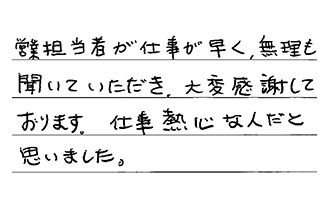 営業担当者が仕事が早く,無理も
聞いていただき,大変感謝して
おります。仕事熱心な人だと
思いました。